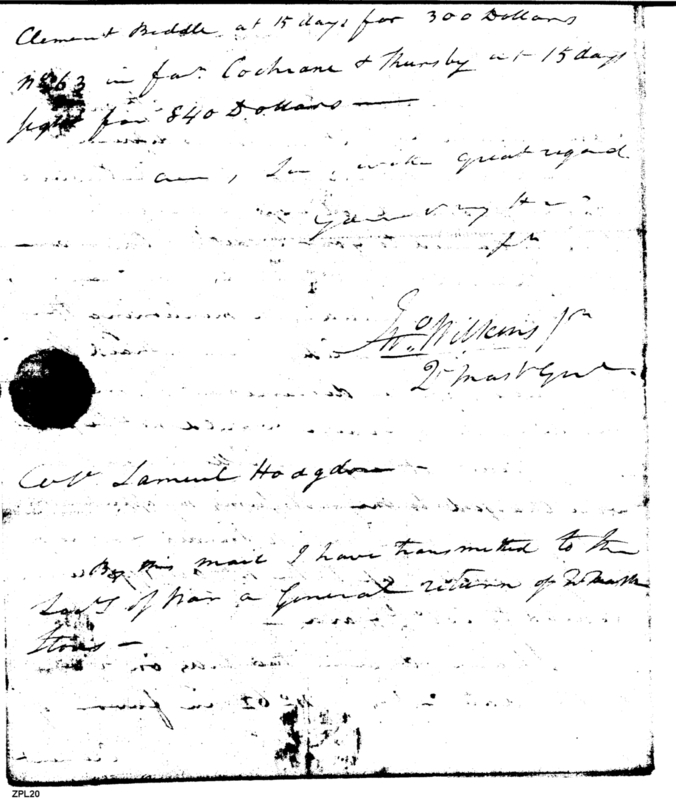 Clement Biddle at 15 days for 300 Dollars
No 63 in favr. Cochrane & Thursby at 15 days
sight for 840 Dollars —
am, Sir, with great regard
Your
Jno. Wilkins Jr
Qr Mastr Genl.
Samuel Hodgdon —
By this mail I have transmitted to the
Secy of War a General return of Qr Mastr
Stores —
ZPL20